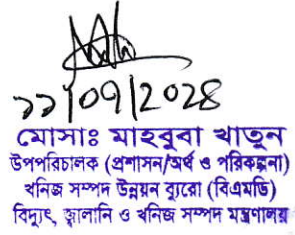 ১১/০৭/২০২৪
মোসাঃ মাহবুবা খাতুন
উপপরিচালক (প্রশাসন/অর্থ ও পরিকল্পনা)
খনিজ সম্পদ উন্নয়ন ব্যুরো (বিএমডি)
বিদ্যুৎ, জ্বালানি ও খনিজ সম্পদ মন্ত্রণালয়